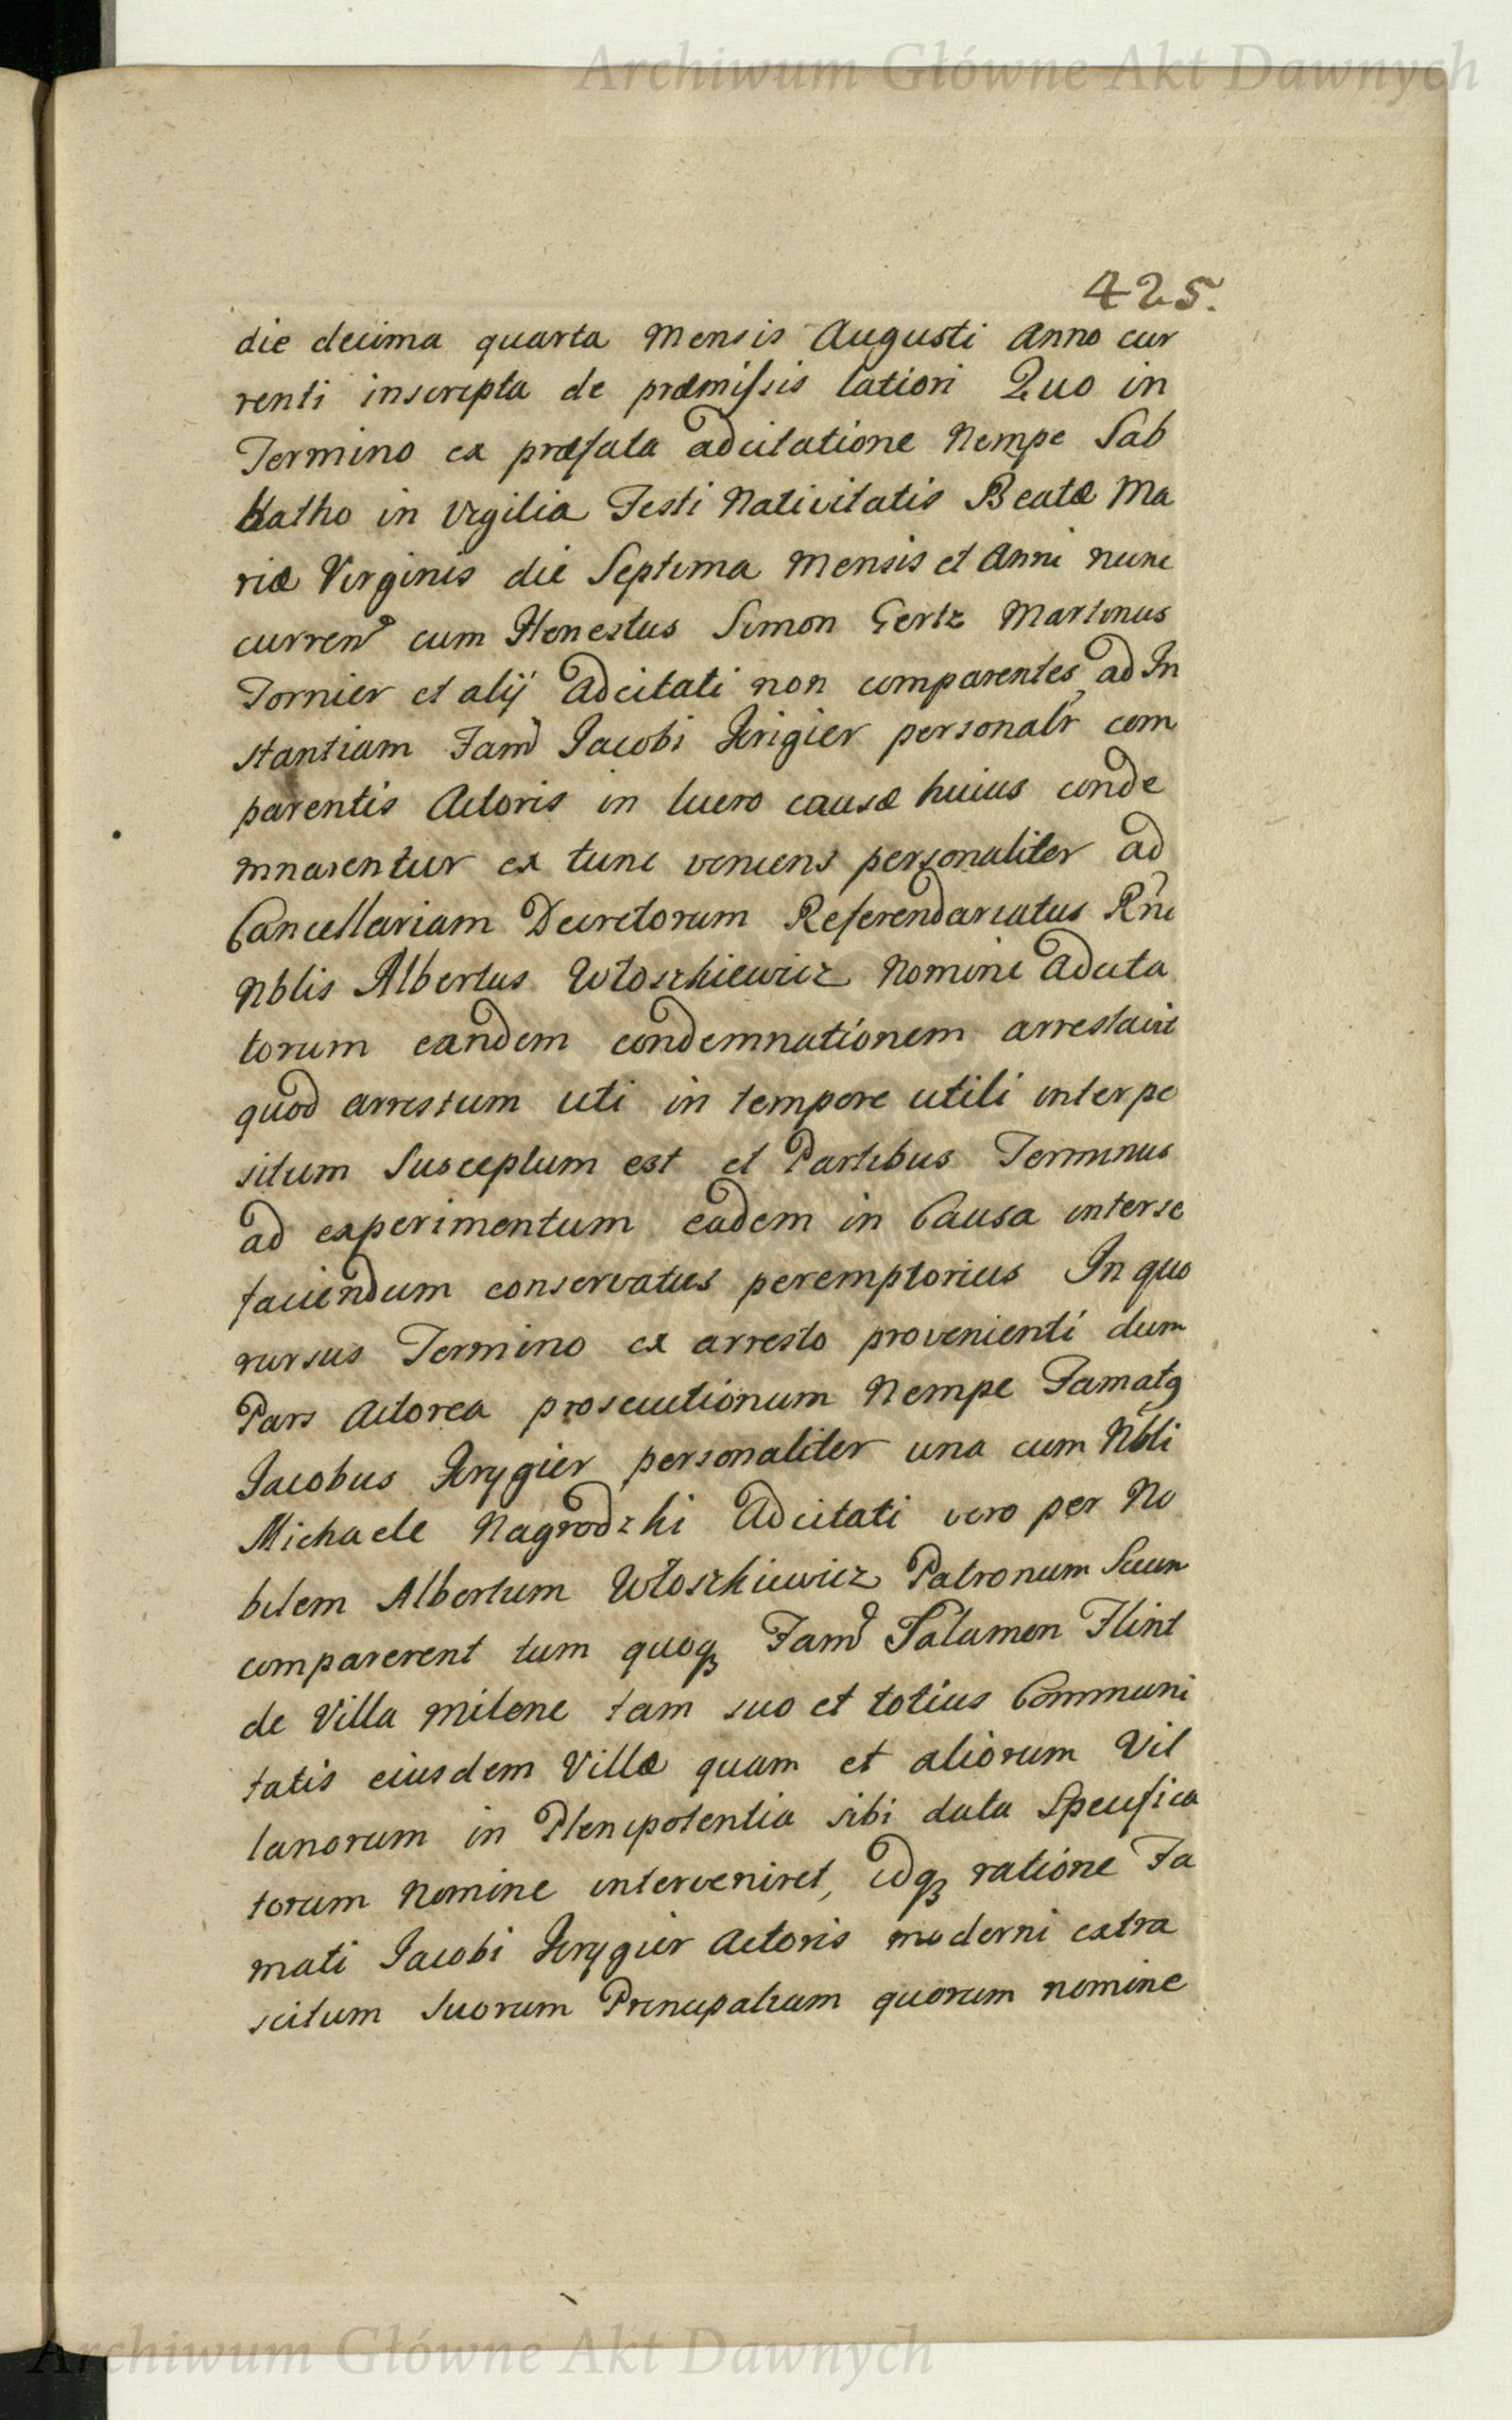 Archiwum Główne Akt Dawnych
425.
die decima quarta Mensis Augusti Anno cur
renti inscripta de præmissis latiori Quo in
Termino ex præfata adcitatione Nempe Sab
batho in Vigilia Festi Nativitatis Beatæ Ma
riæ Virginis die Septima Mensis et Anni nunc
curren cum Honestus Simon Gertz Martinus
Tornier et alij Adcitati non comparentes, ad In
stantiam Fam Jacobi Krigier personalr com
parentis Actoris in lucro causæ huius conde
mnarentur ex tunc veniens personaliter ad
Cancellariam Decretorum Referendariatus Rni
Nblis Albertus Włoszkiewicz Nomine Adcita
torum eandem condemnationem arrestavit
quod arrestum uti in tempore utili interpo
situm Susceptum est et Partibus Terminus
ad experimentum eadem in Causa interse
faciendum conservatus peremptorius In quo
rursus Termino ex arresto provenienti dum
Pars Actorea prosecutionum Nempe Famatq
Jacobus Krygier personaliter una cum Nbli
Michaele Nagrodzki Adcitati vero per No
bilem Albertum Włoszkiewicz Patronum Suum
comparerent tum quoq Fam Salamon Flint
de Villa Milone tam suo et totius Communi
tatis eiusdem Villæ quam et aliorum Vil
lanorum in Plenipotentia sibi data Specifica
torum Nomine interveniret, idq ratione Fa
mati Jacobi Krygier Actoris moderni extra
scitum Suorum Principalium quorum nomine
Archiwum Główne Akt Dawnych